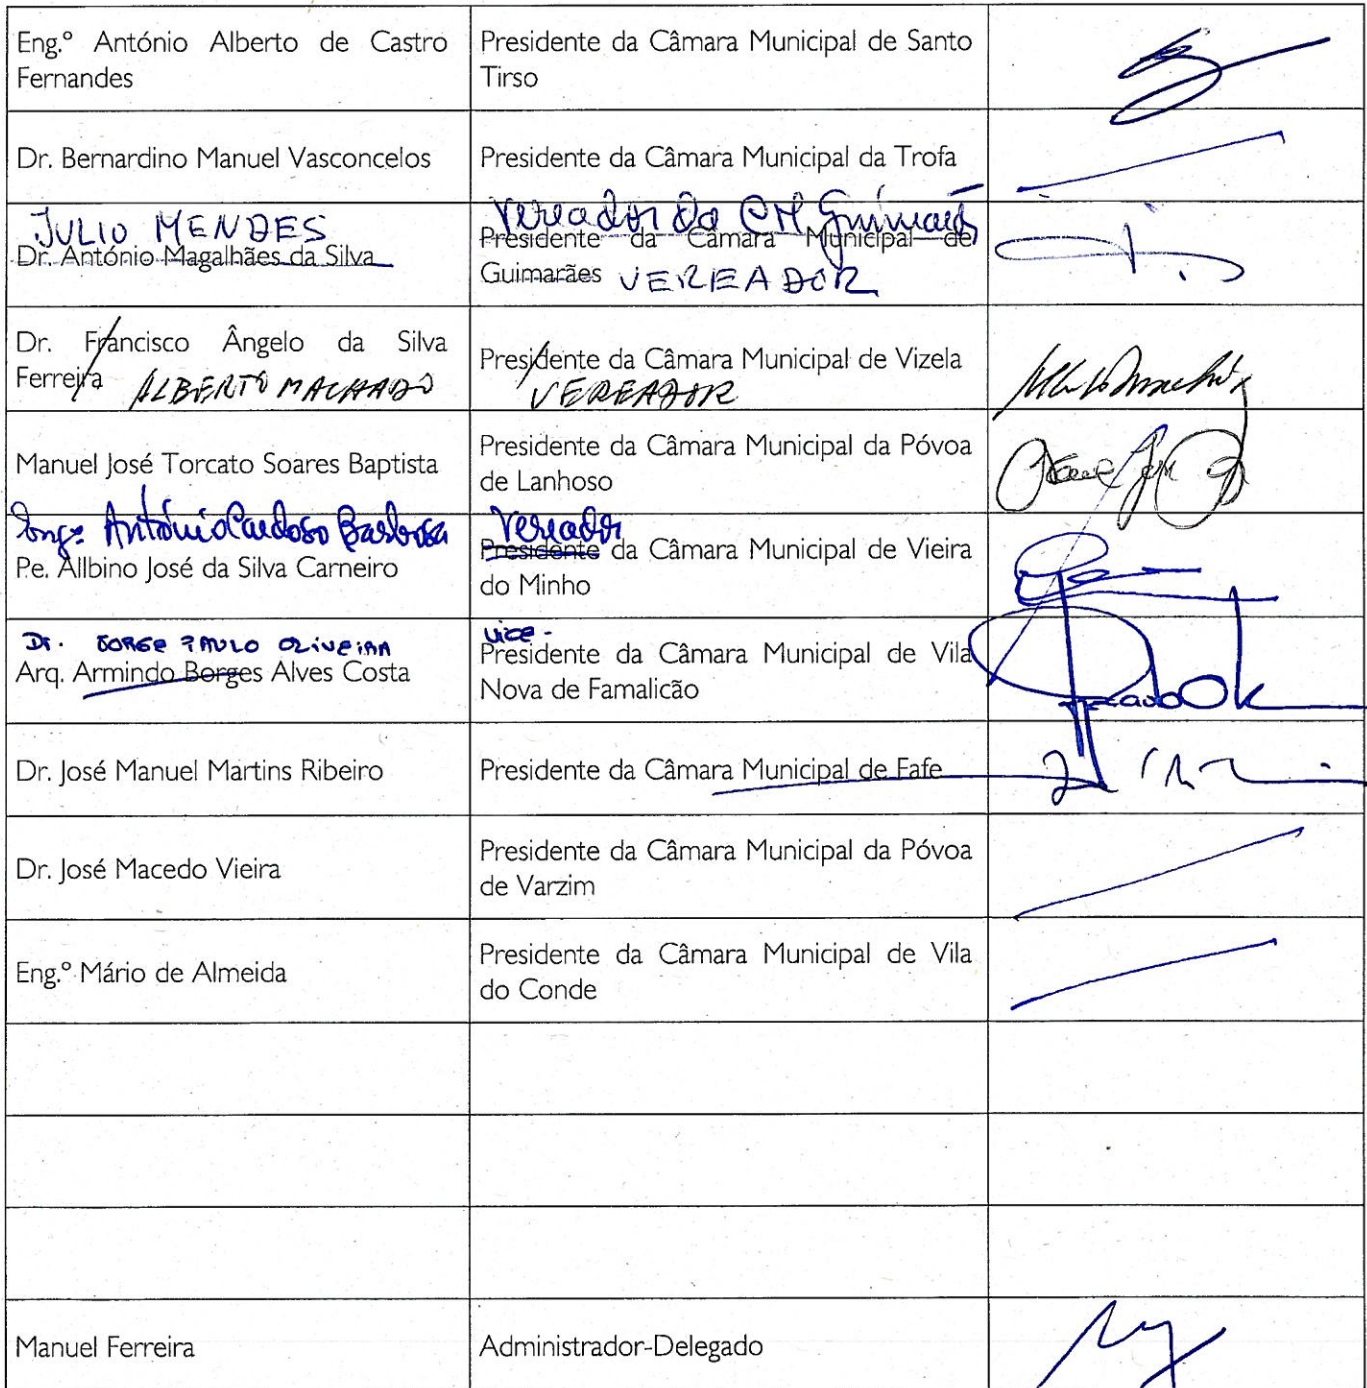 Eng.º António Alberto de Castro
Fernandes
Presidente da Câmara Municipal de Santo
Tirso
Dr. Bernardino Manuel Vasconcelos
Presidente da Câmara Municipal da Trofa
JULIO MENDES
Dr. António Magalhães da Silva
Vereador da CM Guimarães
Presidente da Câmara Municipal de
Guimarães VEREADOR
Dr. Francisco Ângelo da Silva
Ferreira ALBERTO MACHADO
Presidente da Câmara Municipal de Vizela
VEREADOR
Manuel José Torcato Soares Baptista
Presidente da Câmara Municipal da Póvoa
de Lanhoso
Engº António Cardoso Barbosa
P.e. Allbino José da Silva Carneiro
Vereador
Presidente da Câmara Municipal de Vieira
do Minho
Dr. JORGE PAULO OLIVEIRA
Arq. Armindo Borges Alves Costa
Vice-
Presidente da Câmara Municipal de Vila
Nova de Famalicão
Dr. José Manuel Martins Ribeiro
Presidente da Câmara Municipal de Fafe
Dr. José Macedo Vieira
Presidente da Câmara Municipal da Póvoa
de Varzim
Eng.º Mário de Almeida
Presidente da Câmara Municipal de Vila
do Conde
Manuel Ferreira
Administrador-Delegado